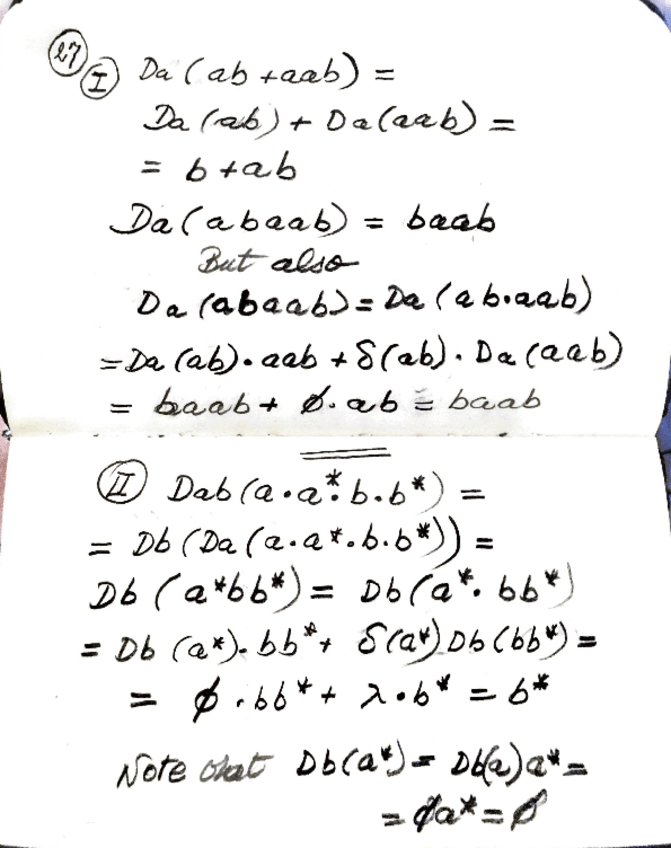 27
I Da (ab + aab) =
Da (ab) + Da (aab) =
= b + ab
Da (abaab) = baab
But also
Da (abaab) = Da (ab·aab)
= Da (ab)·aab + δ(ab)·Da (aab)
= baab + ∅·ab = baab
II Dab (a·a*·b·b*) =
= Db (Da (a·a*·b·b*)) =
Db (a*bb*) = Db (a*·bb*)
= Db (a*)·bb* + δ(a*) Db (bb*) =
= ∅·bb* + λ·b* = b*
Note that Db (a*) = Db(a)a* =
= ∅a* = ∅